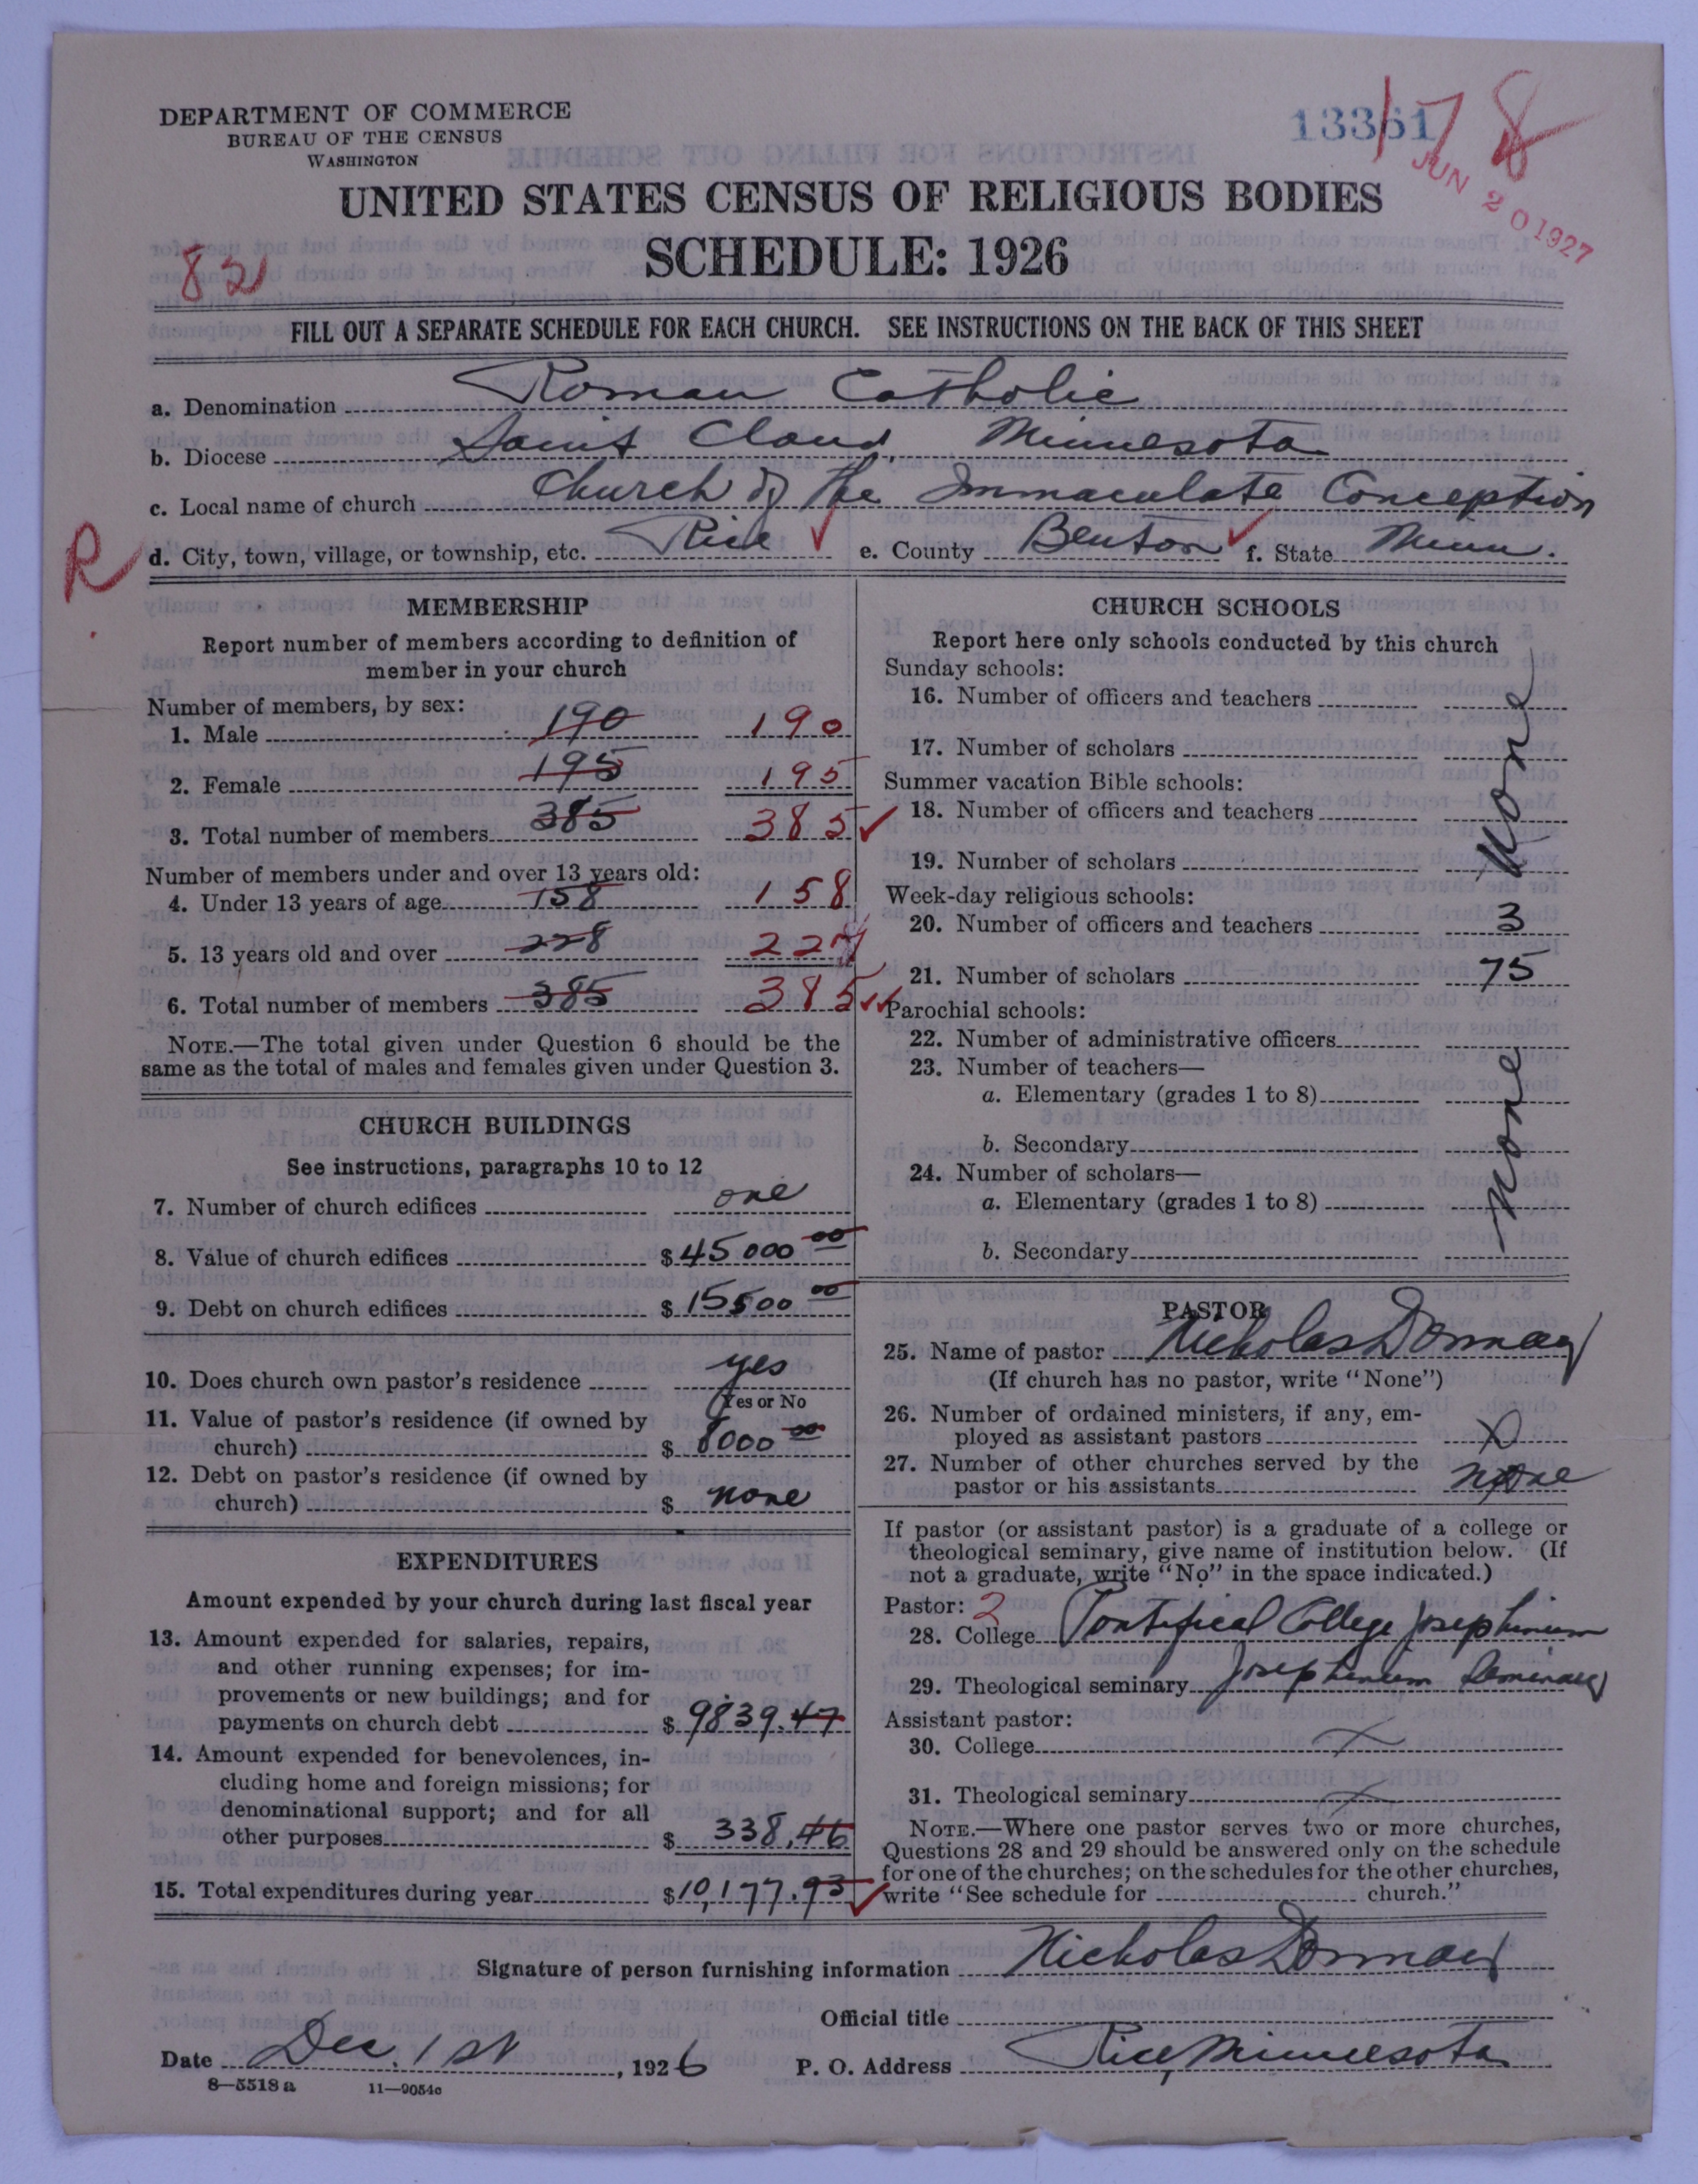 DEPARTMENT OF COMMERCE
BUREAU OF THE CENSUS
WASHINGTON
13361
178
JUN 20 1927
UNITED STATES CENSUS OF RELIGIOUS BODIES
SCHEDULE: 1926
82
FILL OUT A SEPARATE SCHEDULE FOR EACH CHURCH. SEE INSTRUCTIONS ON THE BACK OF THIS SHEET
a. Denomination Roman Catholic
b. Diocese Saint Cloud, Minnesota
c. Local name of church Church of the Immaculate Conception
R
d. City, town, village, or township, etc. Rice e. County Benton f. State Minn.
MEMBERSHIP
Report number of members according to definition of
member in your church
Number of members, by sex:
1. Male 190 190
2. Female 195 195
3. Total number of members 385 385
Number of members under and over 13 years old:
4. Under 13 years of age 158 158
5. 13 years old and over 228 227
6. Total number of members 385 385
NOTE.—The total given under Question 6 should be the
same as the total of males and females given under Question 3.
CHURCH BUILDINGS
See instructions, paragraphs 10 to 12
7. Number of church edifices one
8. Value of church edifices $45000 00
9. Debt on church edifices $15500 00
10. Does church own pastor's residence yes
Yes or No
11. Value of pastor's residence (if owned by
church) $8000 00
12. Debt on pastor's residence (if owned by
church) $ none
EXPENDITURES
Amount expended by your church during last fiscal year
13. Amount expended for salaries, repairs,
and other running expenses; for im-
provements or new buildings; and for
payments on church debt $9839.47
14. Amount expended for benevolences, in-
cluding home and foreign missions; for
denominational support; and for all
other purposes $ 338,46
15. Total expenditures during year $10,177.93
CHURCH SCHOOLS
Report here only schools conducted by this church
Sunday schools:
16. Number of officers and teachers
17. Number of scholars
Summer vacation Bible schools:
18. Number of officers and teachers
19. Number of scholars
None
Week-day religious schools:
20. Number of officers and teachers 3
21. Number of scholars 75
Parochial schools:
22. Number of administrative officers
23. Number of teachers—
a. Elementary (grades 1 to 8)
b. Secondary
24. Number of scholars—
a. Elementary (grades 1 to 8)
b. Secondary
None
PASTOR
25. Name of pastor Nicholas Donnay
(If church has no pastor, write "None")
26. Number of ordained ministers, if any, em-
ployed as assistant pastors X
27. Number of other churches served by the
pastor or his assistants none
If pastor (or assistant pastor) is a graduate of a college or
theological seminary, give name of institution below. (If
not a graduate, write "No" in the space indicated.)
Pastor: 2
28. College Pontifical College Josephinum
29. Theological seminary Josephinum Seminary
Assistant pastor:
30. College X
31. Theological seminary X
NOTE.—Where one pastor serves two or more churches,
Questions 28 and 29 should be answered only on the schedule
for one of the churches; on the schedules for the other churches,
write "See schedule for church."
Signature of person furnishing information Nicholas Donnay
Official title
Date Dec. 1st, 1926 P. O. Address Rice, Minnesota
8—5518 a 11—9054c